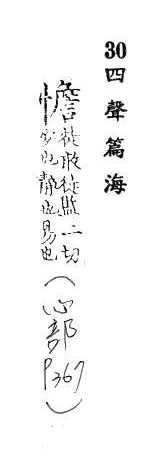 30四聲篇海
憺徒敢徒監二切
安也靜也易也
(心部P367)